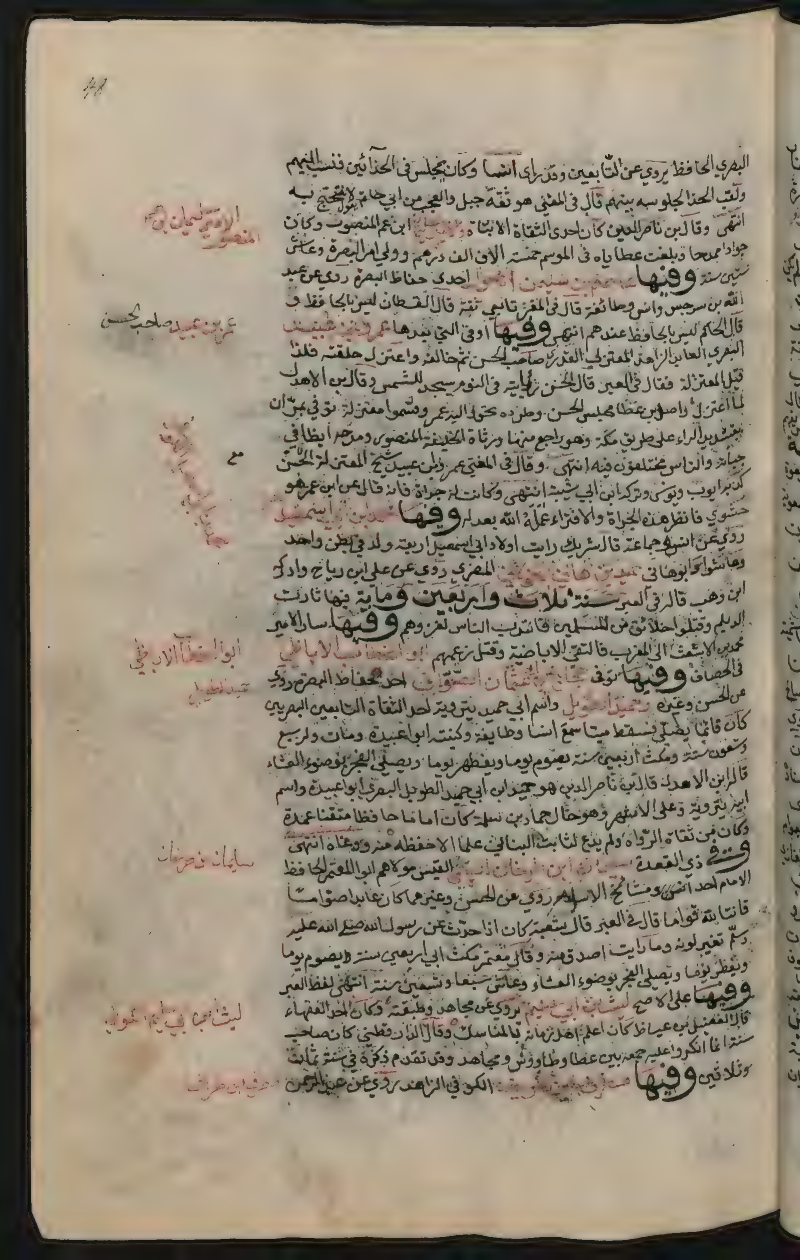 البصري الحافظ يروي عن التابعين وقد راى انسا وكان يجلس في الحذائين فنسب اليهم
ولقب الحذا لجلوسه بينهم قال في المغني هو ثقة جبل والعجب من ابي حاتم يقول لا يحتج به
انتهى وقال بن ناصر الدين كان احدى الثقاة الاثباة ابن عم المنصور وكان
جوادا ممدحا وبلغت عطاياه في الموسم خمسة الاف الف درهم وولي امر البصرة وعاش
ستين سنة وفيها عاصم بن سليمن الاحول احدى حفاظ البصرة روى عن عبد
الله بن سرجس وانس وطائفة قال في المغني تابعي ثقة قال القطان ليس بالحافظ و
قال الحاكم ليس بالحافظ عندهم انتهى وفيها او في التي بعدها عمرو بن عبيد
البصري العابد الزاهد المعتزلي القدري صاحب الحسن ثم خالفه واعتزل حلقته فلذا
قيل المعتزلة فقال في العبر قال الحسن رايته في النوم يسجد للشمس وقال بن الاهدل
لما اعتزل واصل بن عطا مجلس الحسن وطرده تحول اليه عمرو وسموا معتزلة توفي بمران
بتشديد الراء على طريق مكة وهو راجع منها ورثاه الخليفة المنصور ومدحه ايضا في
حياته والناس مختلفون فيه انتهى وقال في المغني عمرو بن عبيد شيخ المعتزلة الحسن
كذبه ايوب ويونس وتركه ابن ابي شيبة انتهى وكانت له جراة فانه قال عن ابن عمر هو
حشوي فانظر هذه الجراة والافتراء عامله الله بعدله وفيها محمد بن ابي اسمعيل
روى عن انس وجماعة قال شريك رايت اولاد ابي اسمعيل اربعة ولد في بطن واحد
وعاشوا وابو هاني حميد بن هاني الخولاني المصري روى عن علي ابن رباح وادركه
ابن وهب قاله في العبر سنة ثلاث واربعين وماية فيها ثارت
الديلم وقتلوا خلائق من المسلمين فانتدب الناس لغزوهم وفيها سار الامير
محمد بن الاشعث الى المغرب فالتقى الاباضية وقتل زعيمهم ابو الخطاب الاباظي
في المصاف وفيها توفي حجاج بن ابي عثمان الصواف احد الحفاظ البصرة روى
عن الحسن وغيره وحميد الطويل واسم ابي حميد تيرويه احد الثقاة التابعين البصريين
كان قائما يصلي فسقط ميتا سمع انسا وطايفة وكنيته ابو عبيدة ومات وله سبع
وسبعون سنة ومكث اربعين سنة يصوم يوما ويفطر يوما ويصلي الفجر بوضوء العشاء
قاله ابن الاهدل قال بن ناصر الدين هو حميد ابن ابي حميد الطويل البصري ابو عبيدة واسم
ابيه تيرويه على الاشهر وهو خال حماد بن سلمة كان اماما حافظا متقنا عمدة
وكان من ثقاة الرواه ولم يدع لثابت البناني علما الا حفظه منه ووعاه انتهى
وفي ذي القعدة سليمان ابن طرخان التيمي القيسي مولاهم ابو المعتمر الحافظ
الامام احد ومشائخ الاسلام روى عن الحسن وغيرهما كان عابدا صواما
قانتا لله قواما قال في العبر قال شعبة كان اذا حدث عن رسول الله صلى الله عليه
وسلم تغير لونه وما رايت اصدق منه وقال معتمر مكث ابي اربعين سنة يصوم يوما
ويفطر يوما ويصلي الفجر بوضوء العشاء وعاش سبعا وتسعين سنة انتهى لفظ العبر
وفيها على الاصح ليث بن ابي سليم يروي عن مجاهد وطبقته وكان احد الفقهاء
قال الفضيل بن عياض كان اعلم اهل زمانه بالمناسك وقال الدارقطني كان صاحب
سنة انما انكروا عليه جمعه بين عطا وطاووس ومجاهد وقد تقدم ذكره في سنة ثمانية
وثلاثين وفيها مطرف بن طريف الكوفي الزاهد روى عن عبد الرحمن
الامير سليمان بن عم
المنصور
عمر بن عبيد صاحب الحسن
ابو الخطاب الاباظي
حميد الطويل
سليمان بن طرخان
ليث بن ابي سليم
مطرف ابن طريف